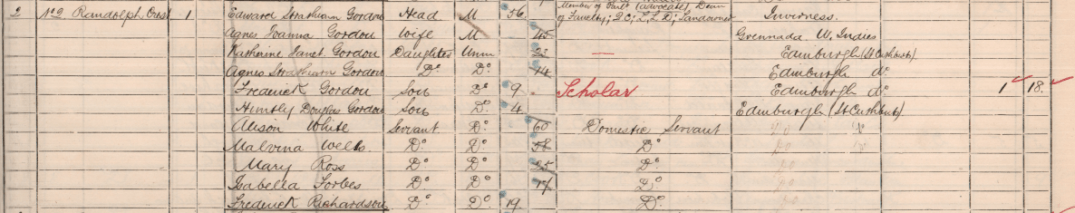 2 No 2 Randolph Cresc 1 Edward Strathearn Gordon Head M 56 Member of Facty (Advocate), Dean of Faculty; Q.C; L.L.D; Landowner Inverness
Agnes Joanna Gordon Wife M 45 Grennada W. Indies
Katherine Janet Gordon Daughter Unm 22 — Edinburgh (St Cuthberts)
Agnes Strathearn Gordon Do Do 14 Edinburgh do
Frederick Gordon Son Do 9 Scholar Edinburgh do 1 18
Huntly Douglas Gordon Son Do 4 Edinburgh (St Cuthberts)
Alison White Servant Do 60 Domestic Servant
Malvina Wells Do Do Do
Mary Ross Do Do Do
Isabella Forbes Do Do Do
Frederick Richardson Do Do 19 Do